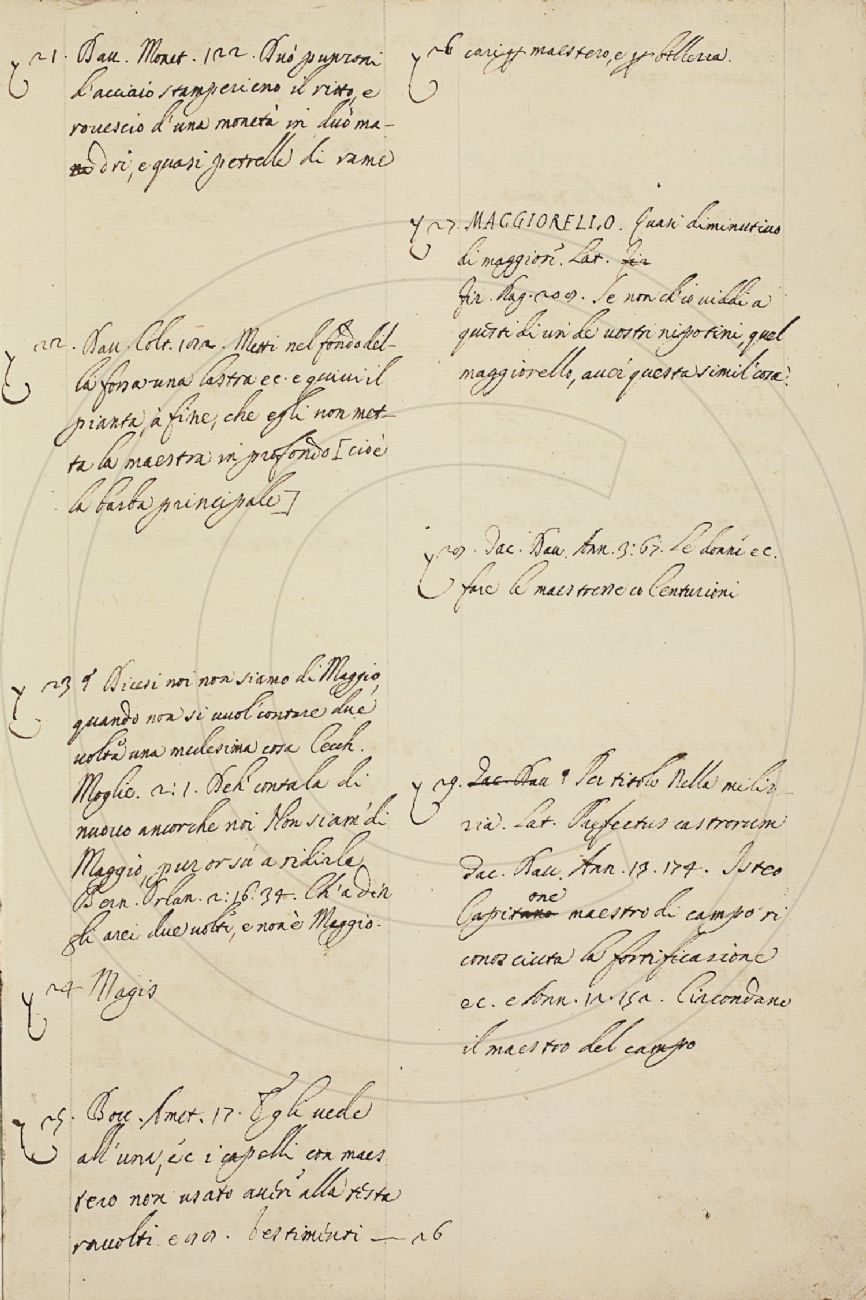 21. Dav. Monet. 122. Duo punzoni
d'acciaio stamperieno il ritto, e
rovescio d'una moneta in duo ma-
dri, e quasi petrelle di rame
22. Dav. Colt. 182. Metti nel fondo del-
la fossa una lastra ec. e quivi il
pianta, à fine, che egli non met-
ta la maestra in profondo [cioè
la barba principale]
23 Dicesi noi non siamo di Maggio,
quando non si vuol contare due
volte una medesima cosa Cecch.
Moglie. 2:1. Deh contala di
nuovo ancorche noi Non siam di
Maggio, pur orsù a ridirla
Bern. Orlan. 2:16:34. Ch'a dir
gli arei due volte, e non è Maggio.
24 Magis
25. Bocc. Amet. 17. Egli vede
all'una, ec i capelli con maes
tero non usato avere alla testa
ravolti e 98. Vestimenti — 26
26 cari maestero, e
27. MAGGIORELLO. Quasi diminutivo
di maggiore. Lat. Fir
Fir. Rag. 208. Se non ch'io viddi a
questi dì un de vostri nipotini, quel
maggiorello, aver questa simil cosa.
28. Tac. Dav. Ann. 3:67. Le donne ec.
fare le maestresse co Centurioni
29. Tac. Dav Per titolo Nella mili
zia. Lat. Praefectus castrorum
Tac. Dav. Ann. 13. 174. Isteo
Capitano one maestro di campo ri
conosciuta la fortificazione
ec. e Ann. 12. 152. Circondano
il maestro del campo